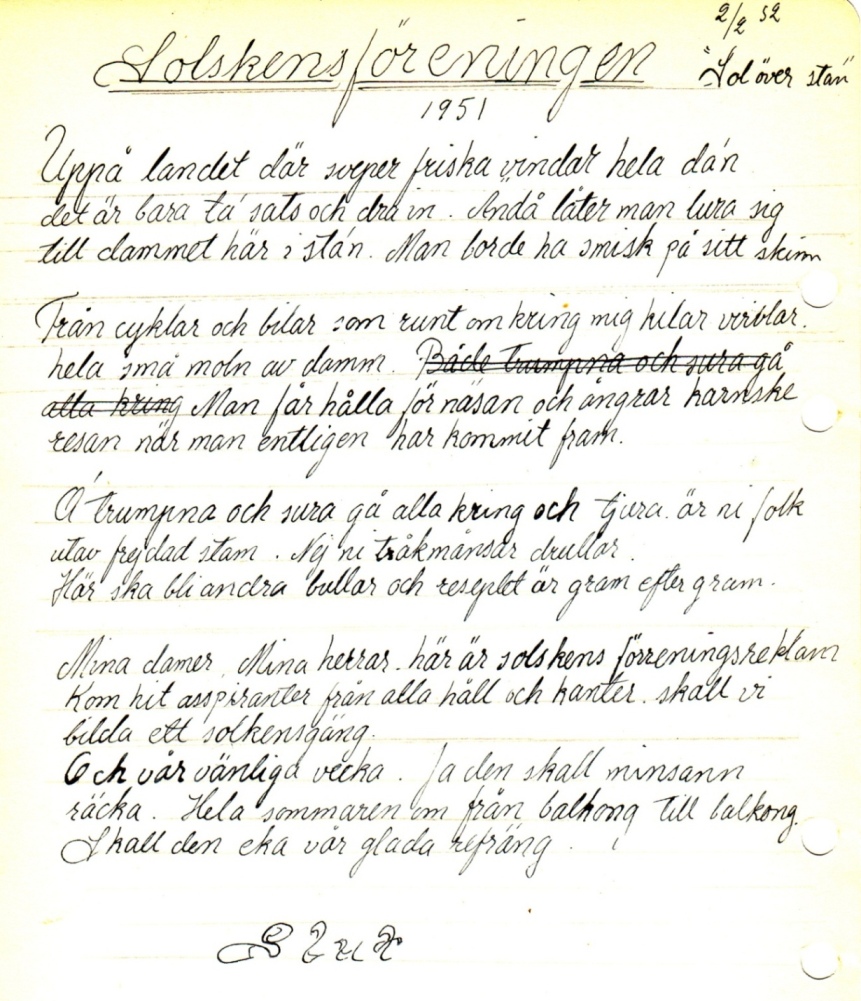 2/2 52
Solskensföreningen
"Sol över stan"
1951
Uppå landet där sveper friska vindar hela da'n
det är bara ta' sats och dra in. Ändå låter man lura sig
till dammet här i sta'n. Man borde ha smisk på sitt skinn
Från cyklar och bilar som runt omkring mig kilar virvlar.
hela små moln av damm. Både trumpna och sura gå
alla kring Man får hålla för näsan och ångrar kanske
resan när man entligen har kommit fram.
Å trumpna och sura gå alla kring och tjura. är ni folk
utav frejdad stam. Nej ni tråkmånsar drullar.
Här ska bli andra bullar och reseptet är gram efter gram.
Mina damer, Mina herrar. här är solskens förreningsreklam
Kom hit asspiranter från alla håll och kanter. skall vi
bilda ett solkensgäng.
Och vår vänliga vecka. Ja den skall minsann
räcka. Hela sommaren om från balkong till balkong.
Skall den eka vår glada refräng.